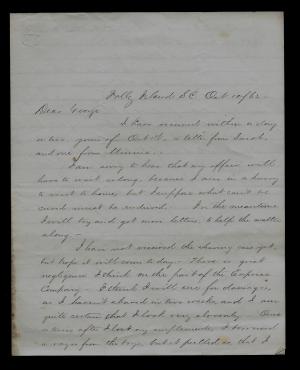 Folly Island S.C. Oct 10/63
Dear George
I have received within a day
or two, yours of Oct 1st, a letter from Sarah,
and one from Minnie.
I am sorry to hear that my affair will
have to wait so long, because I am in a hurry
to want to home, but I suppose what can't be
cured must be endured. In the meantime
I will try and get more letters, to help the matter
along —
I have not received the shaving case yet,
but hope it will come to day — There is great
negligence I think on the part of the Express
Company — I think I will sue for damages,
as I haven't shaved in two weeks, and I am
quite certain that I look very slovenly. Once
or twice after I lost my implements, I borrowed
a razor from the boys, but it pulled so that I